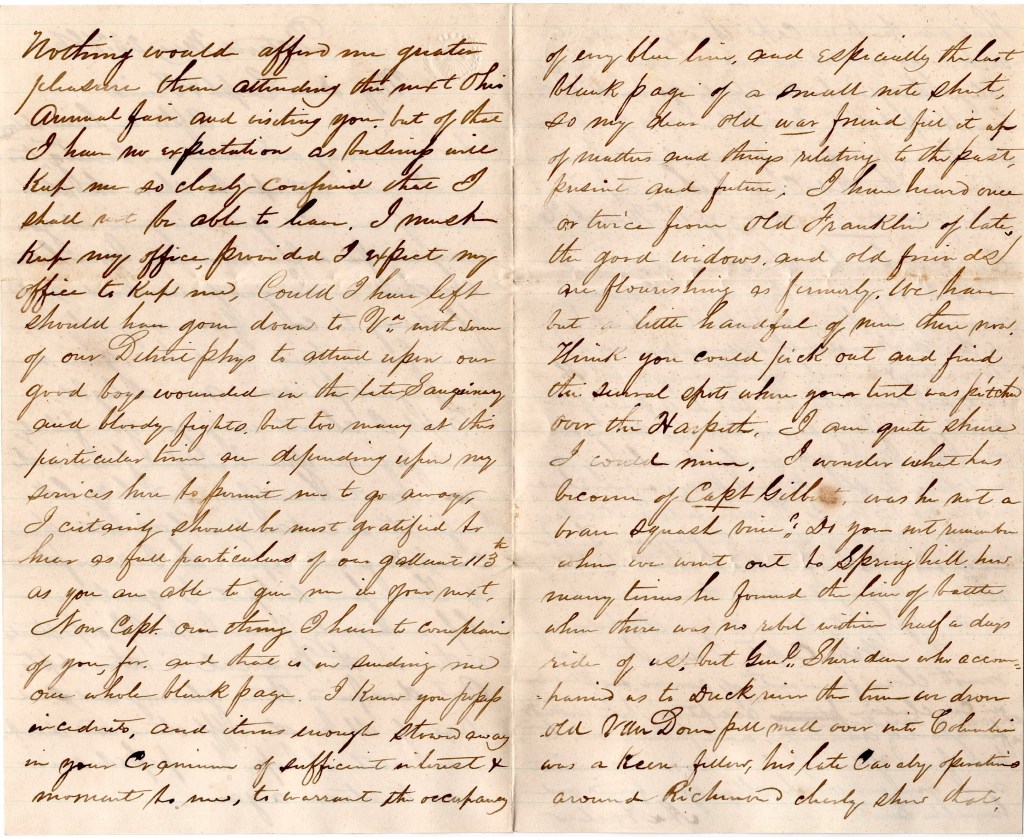 Nothing would afford me greater
pleasure than attending the next Ohio
Annual fair and visiting you, but of that
I have no expectation as business will
keep me so closely confined that I
shall not be able to leave. I must
keep my office, provided I expect my
office to keep me, Could I have left
should have gone down to Va. with some
of our Detroit phys to attend upon our
good boys wounded in the late Sanguinary
and bloody fights, but too many at this
particular time are depending upon my
services here to permit me to go away,
I certainly should be most gratified to
hear as full particulars of our gallant 113th
as you are able to give me in your next.
Now Capt. one thing I have to complain
of you, for, and that is in sending me
one whole blank page. I know you possess
incedents, and items enough stowed away
in your Cranium of sufficient interest &
moment to me, to warrant the occupancy
of evry blue line, and especially the last
blank page of a small note sheet,
so my dear old war friend fill it up
of matters and things relating to the past,
present and future; I have heard once
or twice from old Franklin of late,
the good widows, and old friends
are flourishing as formerly. We have
but a little handful of men there now.
Think you could pick out and find
the several spots where your tent was pitched
over the Harpeth. I am quite shure
I could mine. I wonder what has
become of Capt Gilbert, was he not a
brave squash vine?! Do you not remember
when we went out to Springhill how
many times he formed the line of battle
when there was no rebel within half a days
ride of us, but Genl. Sheridan who accom-
-panied us to Duck river the time we drove
old Van Dorn pell mell over into Columbia
was a keen fellow, his late Cavalry operations
around Richmond clearly show that,